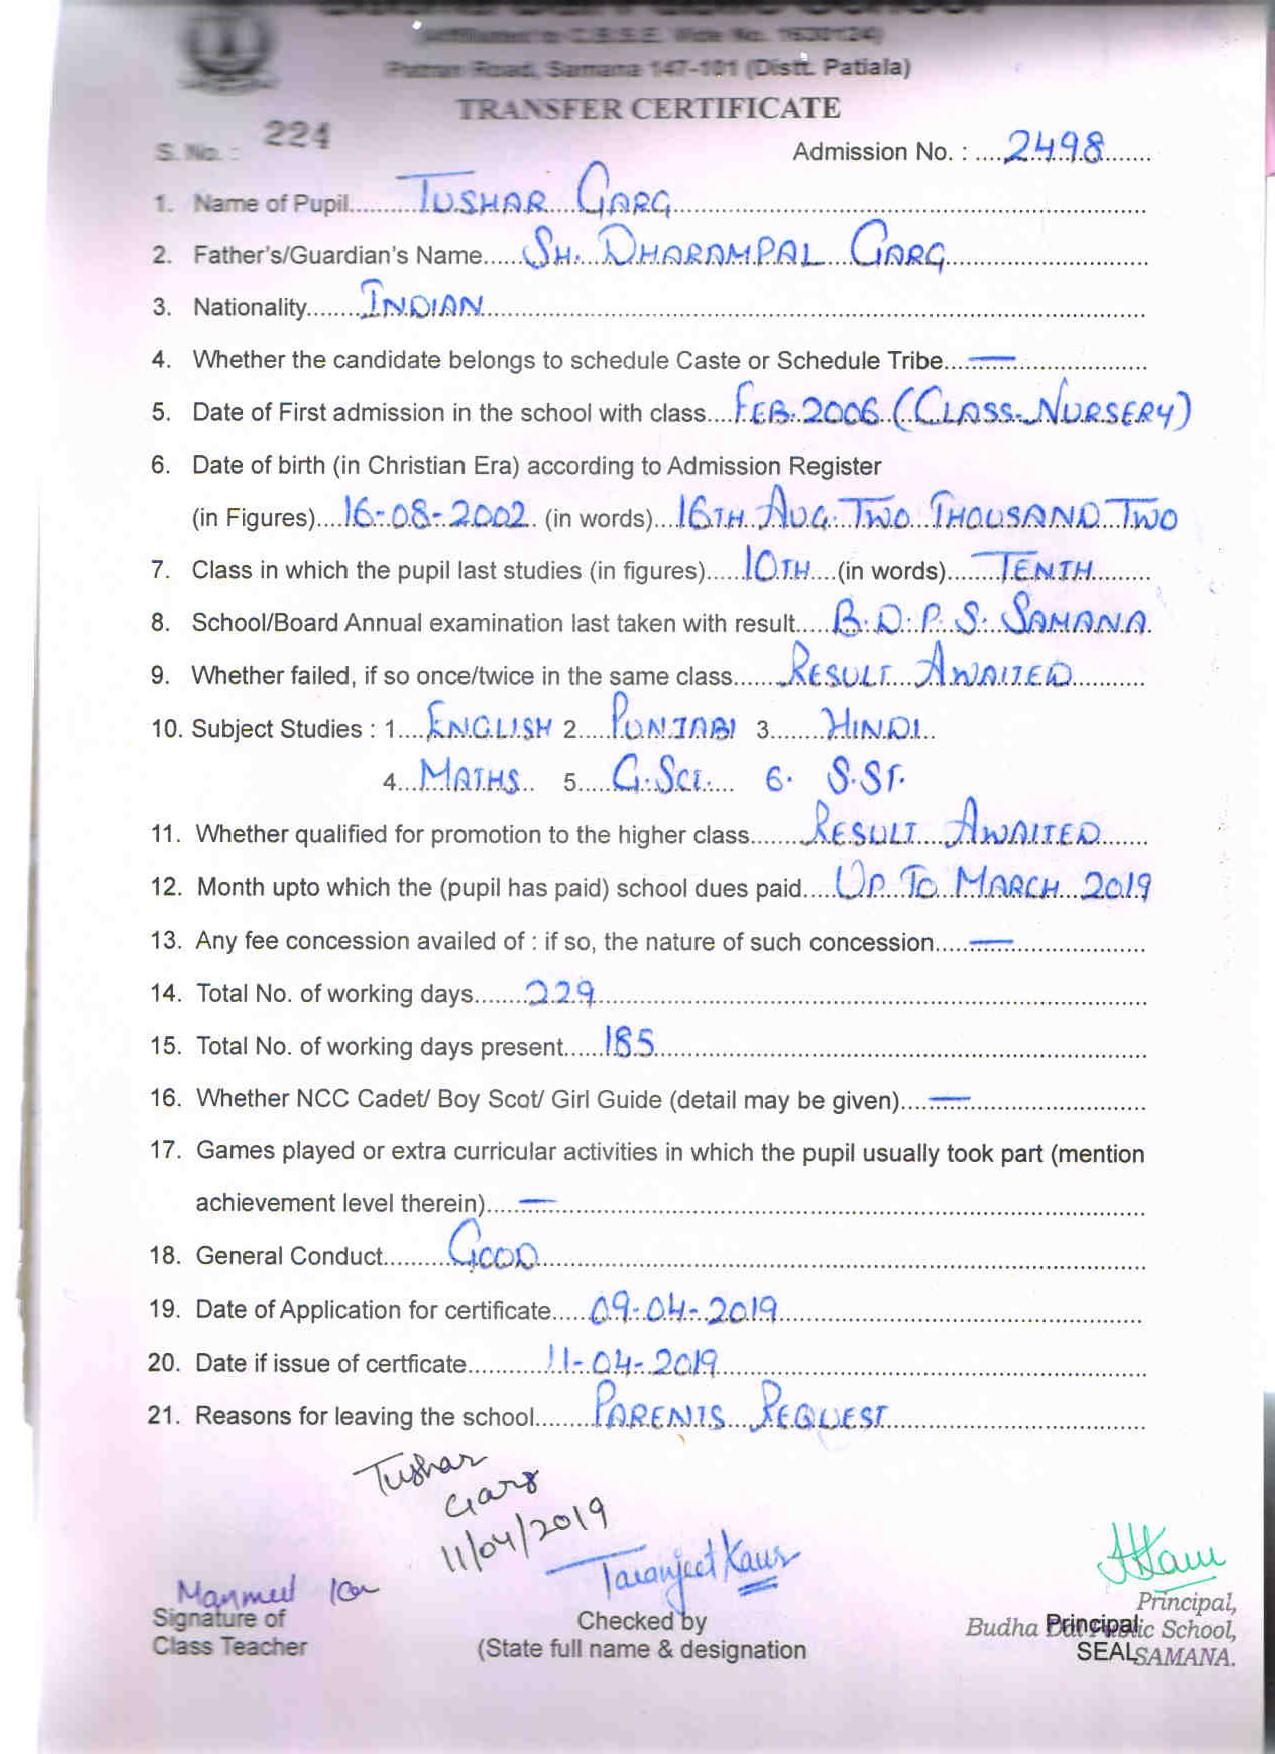 (Affiliated to C.B.S.E. Vide No. 1630124)
Patran Road, Samana 147-101 (Distt. Patiala)
TRANSFER CERTIFICATE
S. No. : 224
Admission No. : ....2498.......
1. Name of Pupil.......TUSHAR GARG.......
2. Father's/Guardian's Name.....SH. DHARAMPAL GARG.......
3. Nationality.......INDIAN.......
4. Whether the candidate belongs to schedule Caste or Schedule Tribe....—.......
5. Date of First admission in the school with class....FEB. 2006 (CLASS-NURSERY)
6. Date of birth (in Christian Era) according to Admission Register
(in Figures)....16-08-2002. (in words)....16TH AUG. TWO THOUSAND TWO
7. Class in which the pupil last studies (in figures)......10TH....(in words).......TENTH.......
8. School/Board Annual examination last taken with result.....B.D.P.S. SAMANA.
9. Whether failed, if so once/twice in the same class.......RESULT AWAITED.......
10. Subject Studies : 1....ENGLISH 2.....PUNJABI 3.......HINDI..
4...MATHS.. 5.....G.SCI..... 6. S.ST.
11. Whether qualified for promotion to the higher class.......RESULT AWAITED.......
12. Month upto which the (pupil has paid) school dues paid....UP TO MARCH 2019
13. Any fee concession availed of : if so, the nature of such concession.....—.......
14. Total No. of working days.......229.......
15. Total No. of working days present......185.......
16. Whether NCC Cadet/ Boy Scot/ Girl Guide (detail may be given)....—.......
17. Games played or extra curricular activities in which the pupil usually took part (mention
achievement level therein).....—.......
18. General Conduct.........GOOD.......
19. Date of Application for certificate.....09-04-2019.......
20. Date if issue of certficate...........11-04-2019.......
21. Reasons for leaving the school.......PARENTS REQUEST.......
Tushar
Garg
11/04/2019
Taranjeet Kaur
Signature of
Class Teacher
Checked by
(State full name & designation
Principal,
Budha Dal Public School,
SAMANA.
Principal
SEAL